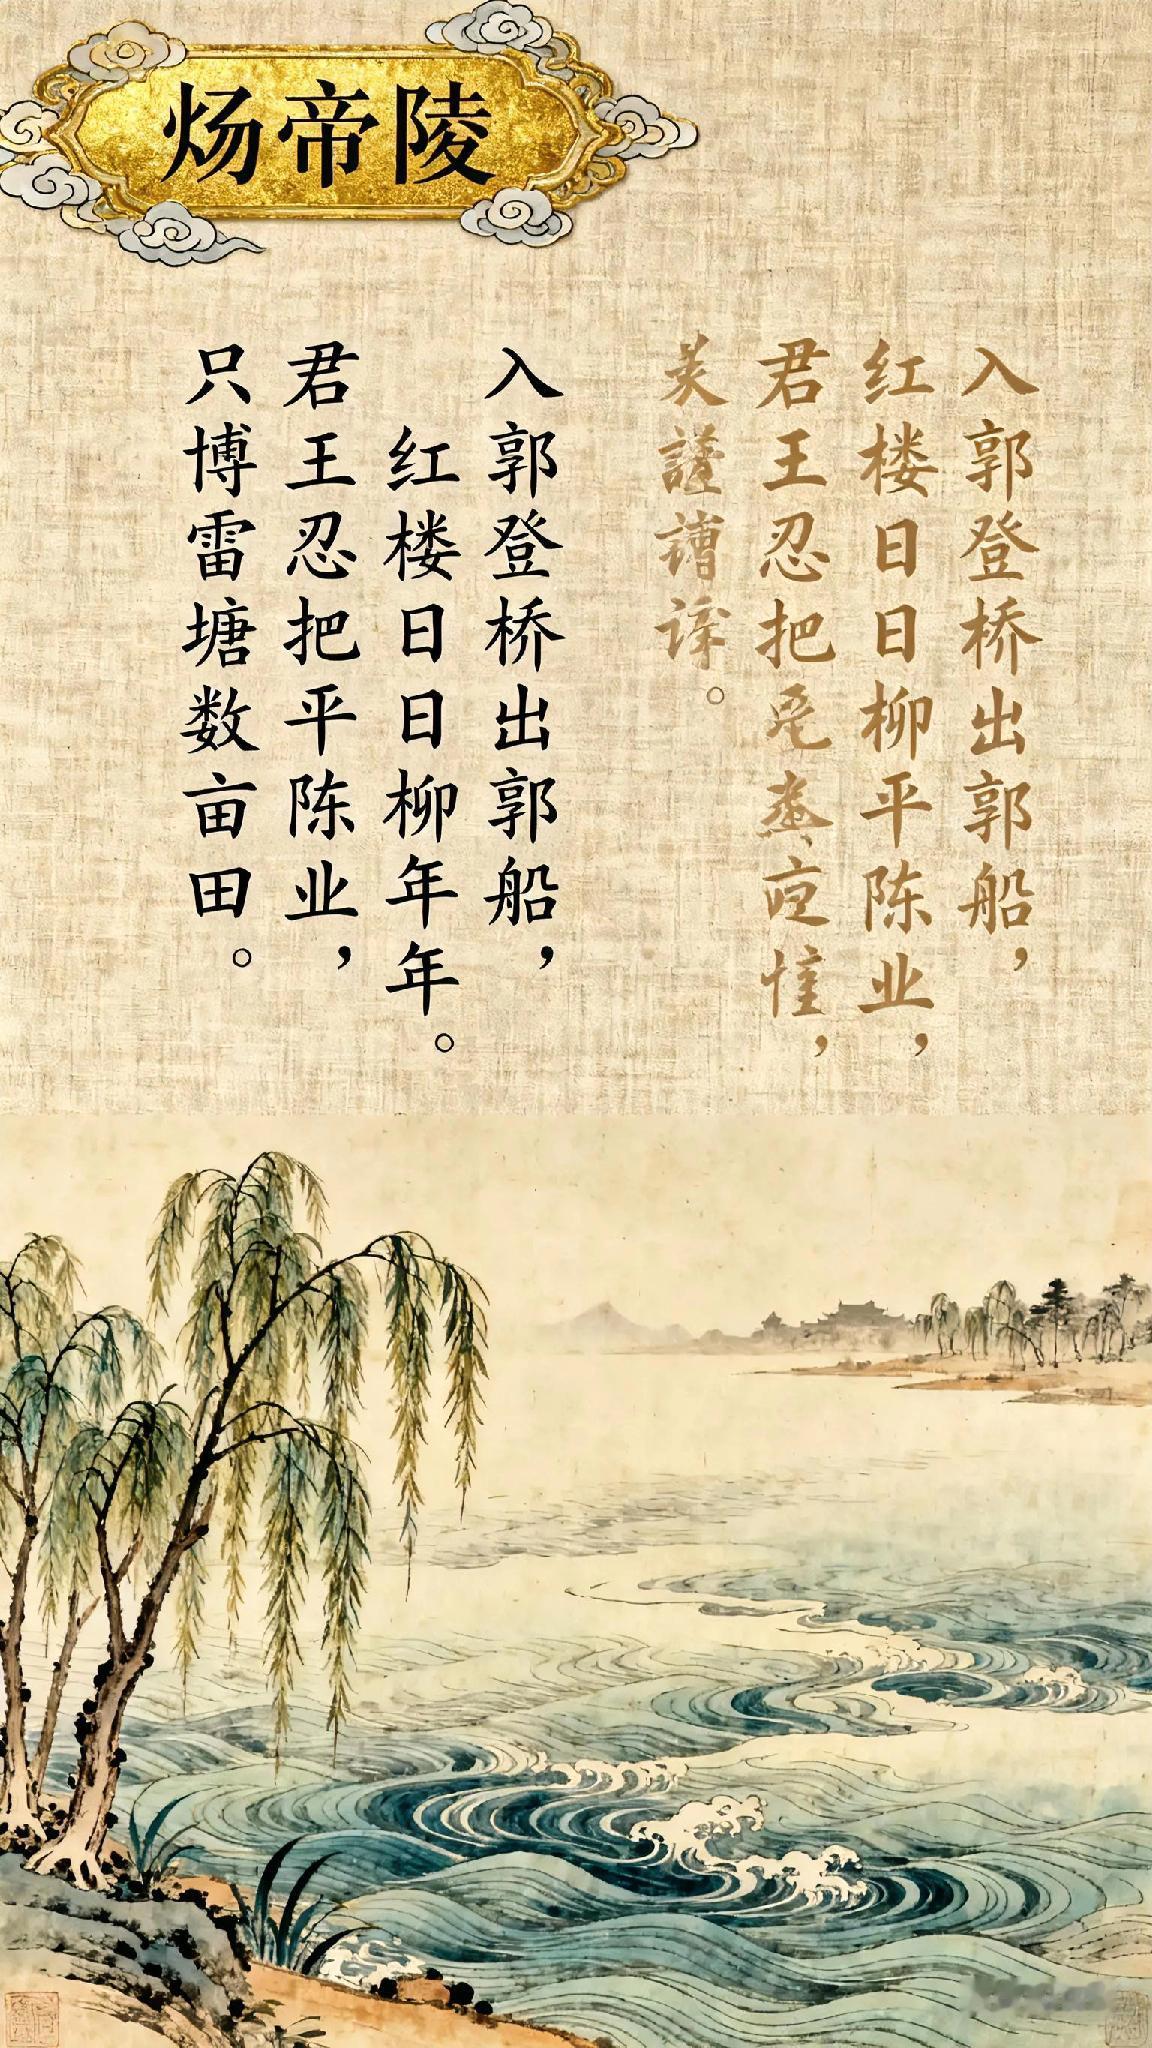 炀帝陵
入郭登桥出郭船，
红楼日日柳平陈业，
君王忍把
入郭登桥出郭船，
红楼日日柳年年。
君王忍把平陈业，
只博雷塘数亩田。